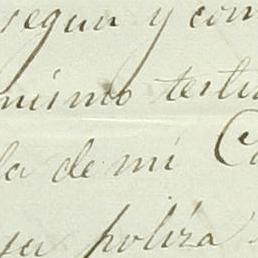 segun y con
mismo testi
la de mi C
su poliza